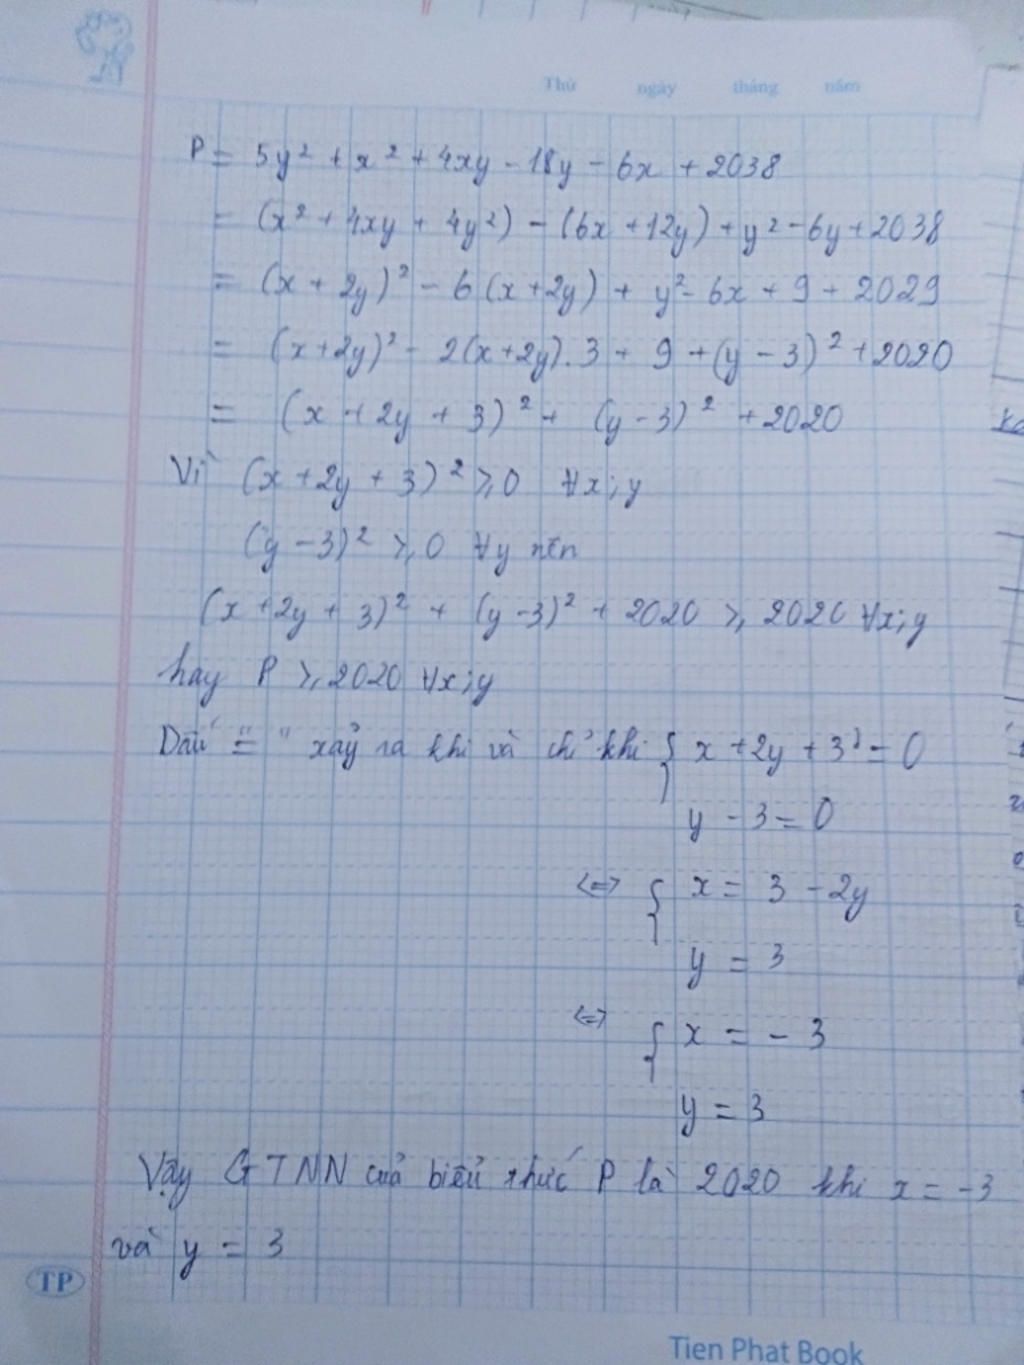 Thứ ngày tháng năm
P = 5y² + x² + 4xy - 18y - 6x + 2038
= (x² + 4xy + 4y²) - (6x + 12y) + y² - 6y + 2038
= (x + 2y)² - 6(x + 2y) + y² - 6x + 9 + 2029
= (x + 2y)² - 2(x + 2y).3 + 9 + (y - 3)² + 2020
= (x + 2y + 3)² + (y - 3)² + 2020
Vì (x + 2y + 3)² ≥ 0 ∀x;y
(y - 3)² ≥ 0 ∀y nên
(x + 2y + 3)² + (y - 3)² + 2020 ≥ 2020 ∀x;y
hay P ≥ 2020 ∀x;y
Dấu "=" xảy ra khi và chỉ khi { x + 2y + 3 = 0
y - 3 = 0
<=> { x = 3 - 2y
y = 3
<=> { x = - 3
y = 3
Vậy GTNN của biểu thức P là 2020 khi x = -3
và y = 3
TP
Tien Phat Book